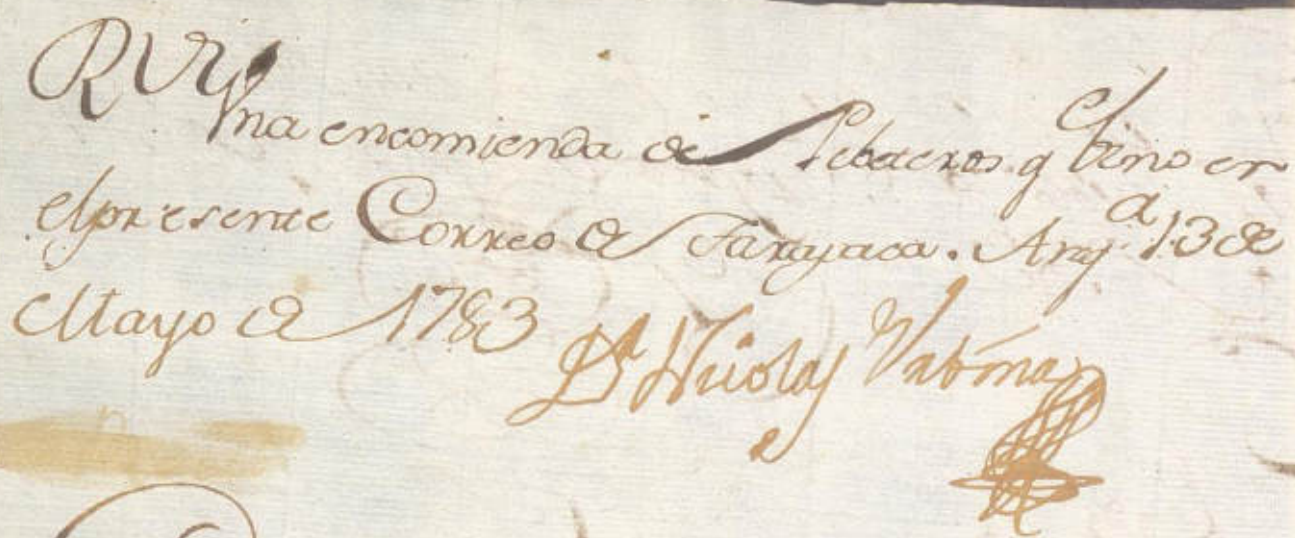 RVI
una encomienda de Pebeteros q.e bino en
el presente Correo de Tarapaca. Areq.a 13 de
Mayo de 1783 Dr Nicolas